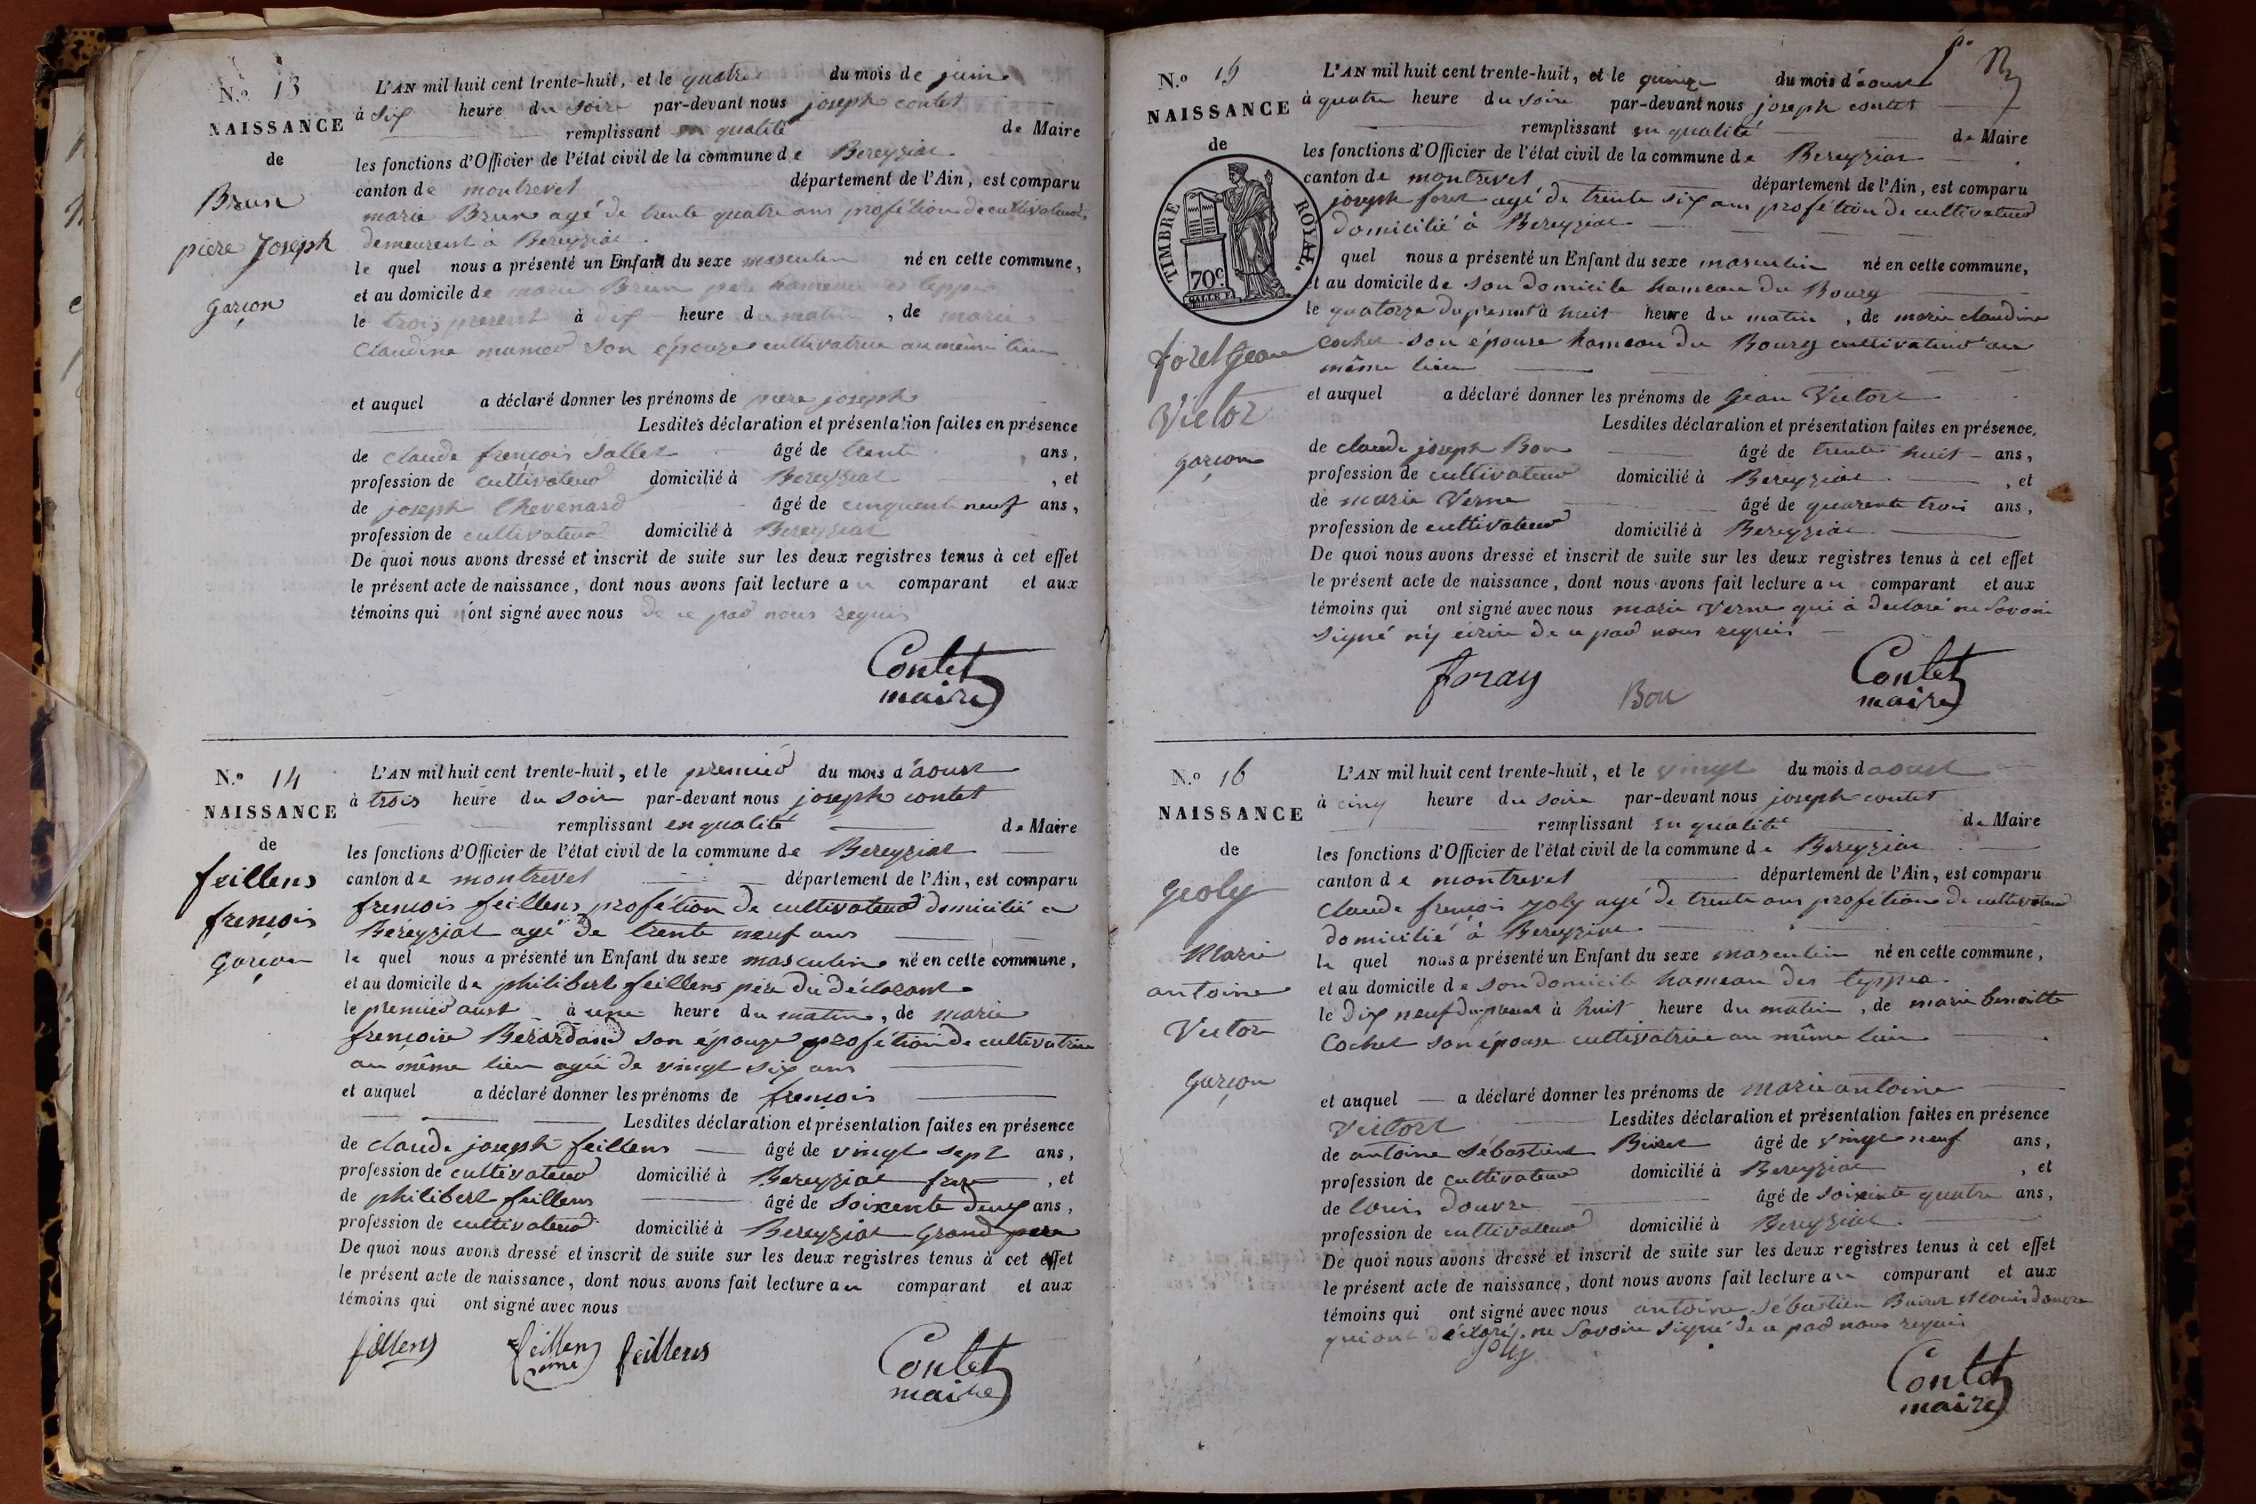 N.o 13
NAISSANCE
de
Brun
piere Joseph
garçon
L'AN mil huit cent trente-huit, et le quatre du mois de juin
à six heure du soire par-devant nous joseph contet
remplissant en qualité de Maire
les fonctions d'Officier de l'état civil de la commune de Bereyziat
canton de montrevel département de l'Ain, est comparu
marie Brun agé de trente quatre ans profétion de cultivateur
demeurent à Bereyziat
le quel nous a présenté un Enfant du sexe masculin né en cette commune,
et au domicile de marie Brun pere hameau des teppes
le trois present à dix heure du matin, de marie
Claudine son épouze cultivatrice au même lieu
et auquel a déclaré donner les prénoms de piere joseph
Lesdites déclaration et présentation faites en présence
de claude françois Sallet âgé de trente ans,
profession de cultivateur domicilié à Bereyziat, et
de joseph Chevenard âgé de cinquente neuf ans,
profession de cultivateur domicilié à Bereyziat
De quoi nous avons dressé et inscrit de suite sur les deux registres tenus à cet effet
le présent acte de naissance, dont nous avons fait lecture au comparant et aux
témoins qui n'ont signé avec nous de ce par nous requis
Contet
maire
N.o 14
NAISSANCE
de
feillens
frençois
garçon
L'AN mil huit cent trente-huit, et le premier du mois d'aoust
à trois heure du soir par-devant nous joseph contet
remplissant en qualité de Maire
les fonctions d'Officier de l'état civil de la commune de Bereyziat
canton de montrevel département de l'Ain, est comparu
frencois feillens profétion de cultivateur domicilié a
Bereyziat agé de trente neuf ans
le quel nous a présenté un Enfant du sexe masculin né en cette commune,
et au domicile de philibert feillens pere du déclarant
le premier aust à une heure du matin, de marie
frençoise Berardand son épouze profétion de cultivatrice
au même lieu agée de vingt six ans
et auquel a déclaré donner les prénoms de frençois
Lesdites déclaration et présentation faites en présence
de claude joseph feillens âgé de vingt sept ans,
profession de cultivateur domicilié à Bereyziat frere, et
de philibert feillens âgé de soixente deux ans,
profession de cultivateur domicilié à Bereyziat Grand pere
De quoi nous avons dressé et inscrit de suite sur les deux registres tenus à cet effet
le présent acte de naissance, dont nous avons fait lecture au comparant et aux
témoins qui ont signé avec nous
feillens feillens feillens
Contet
maire
N.o 15
NAISSANCE
de
TIMBRE ROYAL.
70c.
foret Jean
Victor
garçon
L'AN mil huit cent trente-huit, et le quinze du mois d'aoust
à quatre heure du soire par-devant nous joseph contet
remplissant en qualité de Maire
les fonctions d'Officier de l'état civil de la commune de Bereyziat
canton de montrevel département de l'Ain, est comparu
joseph foret agé de trente six ans profétion de cultivateur
domicilié à Bereyziat
quel nous a présenté un Enfant du sexe masculin né en cette commune,
et au domicile de son domicile hameau du Bourg
le quatorze du present à huit heure du matin, de marie claudine
cochet son épouse hameau du Bourg cultivateur au
même lieu
et auquel a déclaré donner les prénoms de gean Victort
Lesdites déclaration et présentation faites en présence,
de claude joseph Bon âgé de trente huit ans,
profession de cultivateur domicilié à Bereyziat, et
de marie Verne âgé de quarente trois ans,
profession de cultivateur domicilié à Bereyziat
De quoi nous avons dressé et inscrit de suite sur les deux registres tenus à cet effet
le présent acte de naissance, dont nous avons fait lecture au comparant et aux
témoins qui ont signé avec nous marie Verne qui à déclaré ne Savoir
signé n'y écrire de ce par nous requis
foray Bon
Contet
maire
N.o 16
NAISSANCE
de
goly
Marie
antoine
Victor
garçon
L'AN mil huit cent trente-huit, et le vingt du mois d aoust
à cinq heure du soire par-devant nous joseph contet
remplissant en qualité de Maire
les fonctions d'Officier de l'état civil de la commune de Bereyziat
canton de montrevel département de l'Ain, est comparu
Claude frençois joly agé de trente ans profétion de cultivateur
domicilié à Bereyziat
le quel nous a présenté un Enfant du sexe masculin né en cette commune,
et au domicile de son domicile hameau des teppes
le dix neuf du present à huit heure du matin, de marie benoitte
Cochet son épouse cultivatrice au même lieu
et auquel a déclaré donner les prénoms de marie antoine
Victort Lesdites déclaration et présentation faites en présence
de antoine sébastient Buiret âgé de vingt neuf ans,
profession de cultivateur domicilié à Bereyziat, et
de louis douvre âgé de soixente quatre ans,
profession de cultivateur domicilié à Bereyziat
De quoi nous avons dressé et inscrit de suite sur les deux registres tenus à cet effet
le présent acte de naissance, dont nous avons fait lecture au comparant et aux
témoins qui ont signé avec nous antoine Sébastien Buiret louis douvre
qui ont déclaré ne Savoire signé de ce par nous requis
Joly
Contet
maire